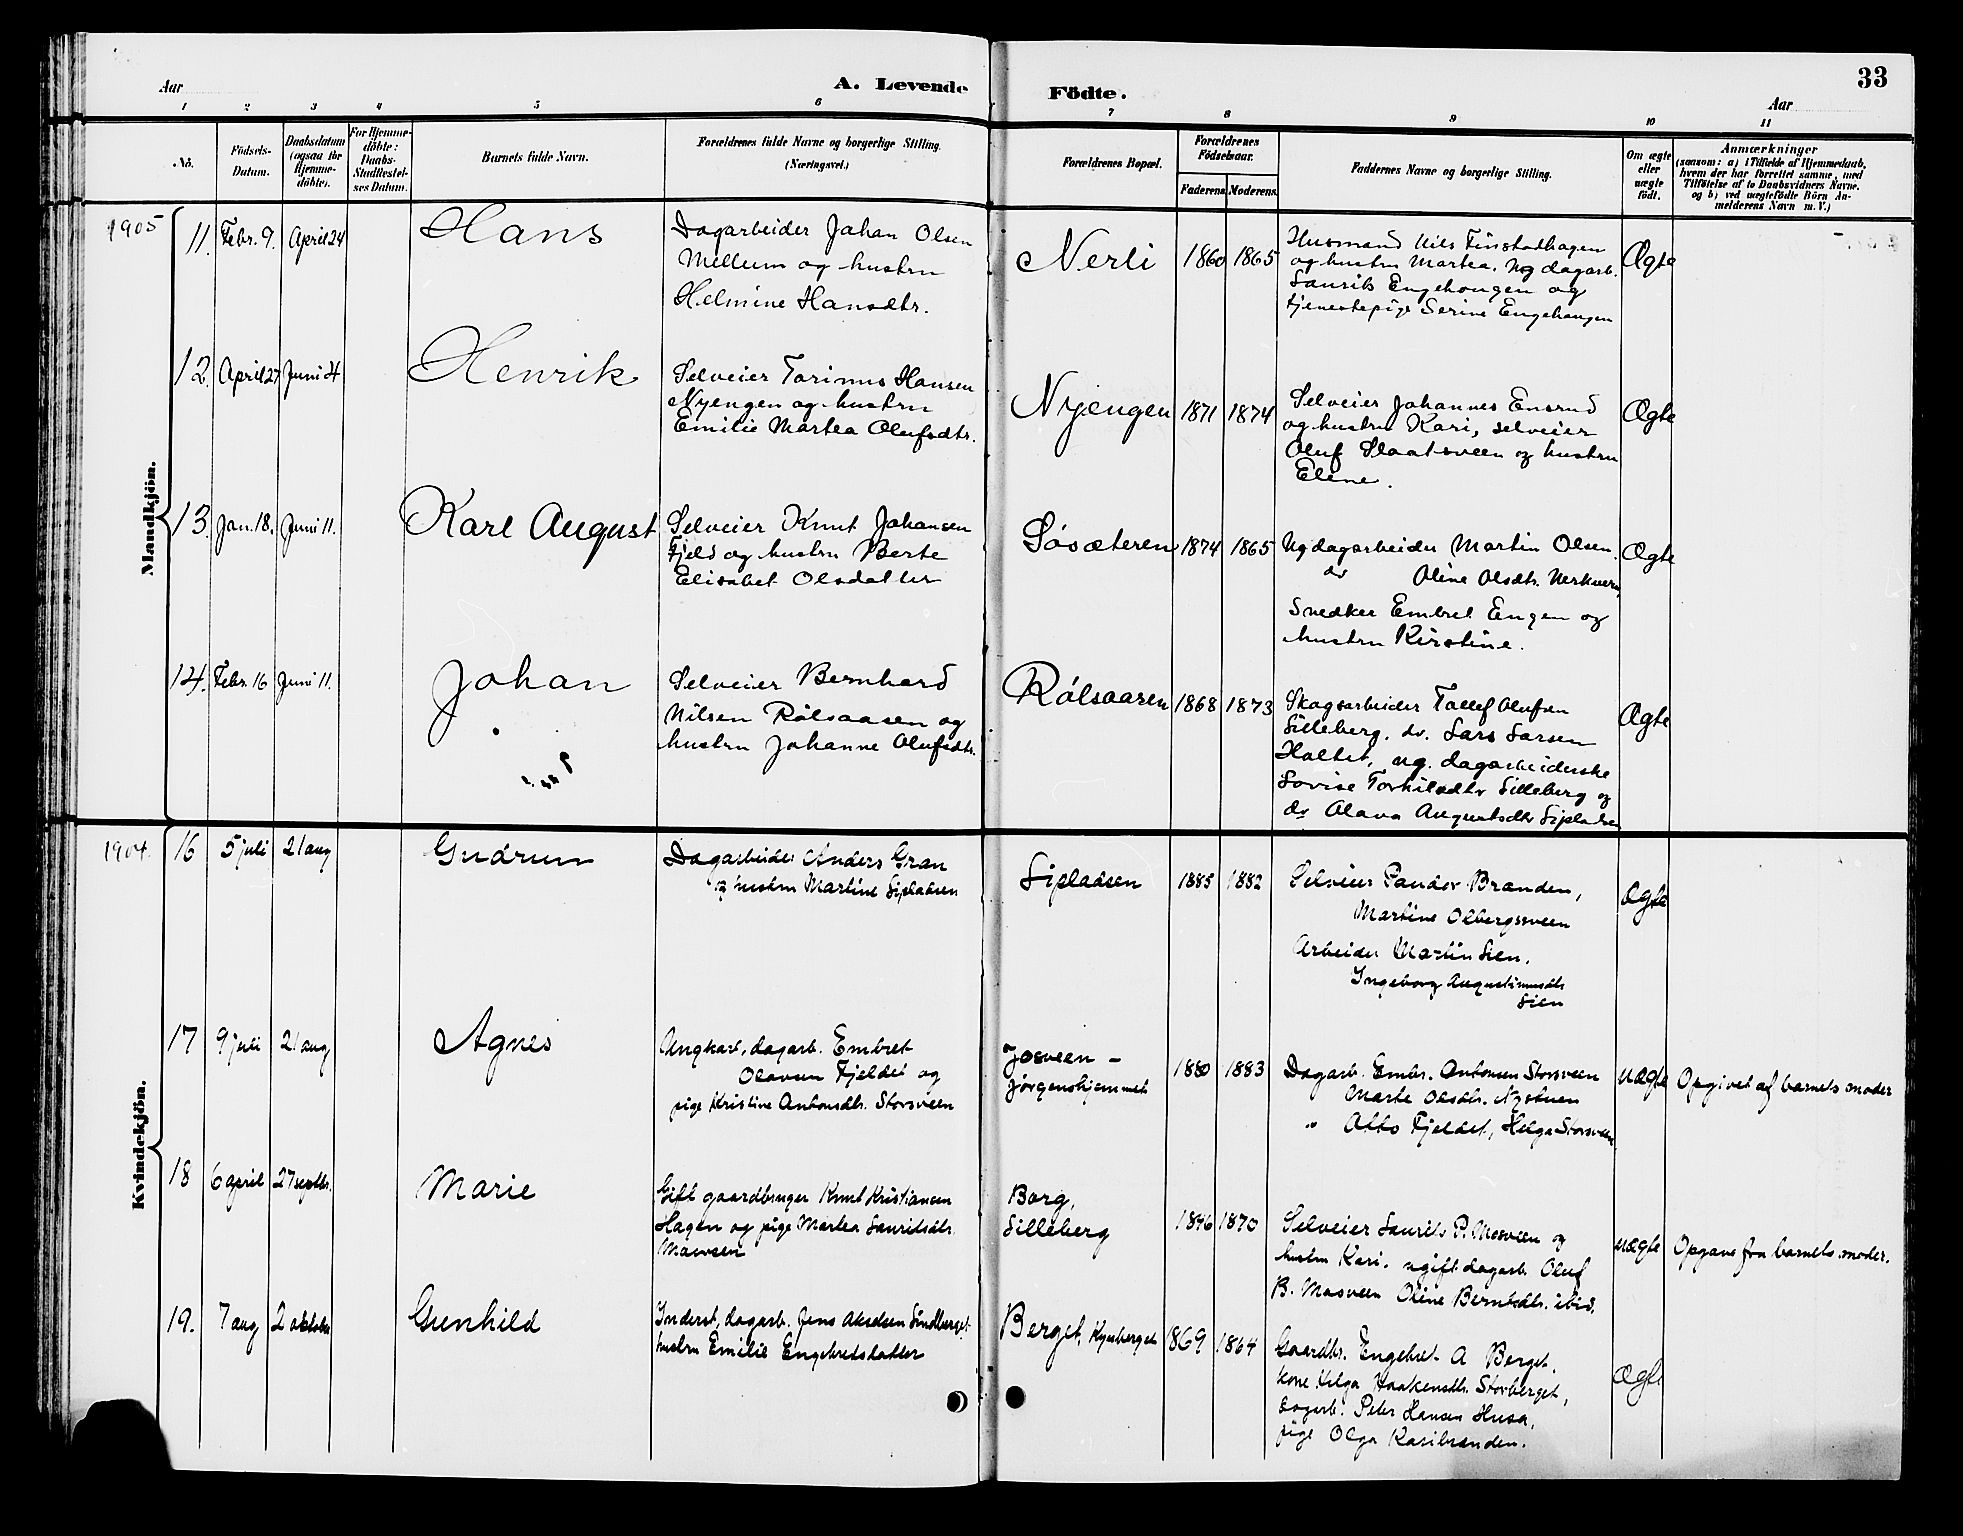 33
Aar
A. Levende Födte.
Aar
1 2 3 4 5 6 7 8 9 10 11
No.
Födsels-Datum.
Daabsdatum (ogsaa for Hjemme-döbte).
For Hjemme-döbte: Daabs-Stadfæstel-ses Datum.
Barnets fulde Navn.
Forældrenes fulde Navne og borgerlige Stilling.
(Næringsvei.)
Forældrenes Bopæl.
Forældrenes Födselsaar.
Faderens. Moderens.
Faddernes Navne og borgerlige Stilling.
Om ægte eller uægte født.
Anmærkninger
(saasom: a) i Tilfælde af Hjemmedaab,
hvem der har forrettet samme, med
Tilföielse af to Daabsvidners Navne.
og b) ved uægtefödte Börn An-
melderens Navn m. V.)
Mandkjön.
1905 11. Febr. 9. April 24 Hans
Dagarbeider Johan Olsen
Mellum og hustru
Helmine Hansdtr.
Nerli 1860 1865
Husmand Nils Finstadhagen
og hustru Martea. Ug dagarb.
Laurits Engehaugen og
tjenestepige Serine Engehaugen
Ægte
12. April 27 Juni 4 Henrik
Selveier Torinus Hansen
Nyengen og hustru
Emilie Martea Olufsdtr.
Nyengen 1871 1874
Selveier Johannes Ensrud
og hustru Kari, selveier
Oluf Slaatsveen og hustru
Elene.
Ægte
13. Jan. 18. Juni 11. Karl August
Selveier Knut Johansen
Fjeld og hustru Berte
Elisabet Olsdatter
Søsæteren 1874 1865
Ug dagarbeider Martin Olsen.
do Oline Olsdtr.
Snedker Embret Engen og
hustru Kirstine.
Ægte
14. Febr. 16 Juni 11. Johan
Selveier Bernhard
Nilsen Rølsaasen og
hustru Johanne Olufsdtr.
Rølsaasen 1868 1873
Skogsarbeider Tollef Olufsen
Silleberg. do. Lars Larsen
Holtet, ug. dagarbeiderske
Lovise Torkilsdtr Silleberg og
do Olava Augustsdtr Siplassen
Ægte
Kvindekjön.
1904. 16 5 juli 21 aug Gudrun
Dagarbeider Anders Gran
og hustru Martine Siplassen
Siplassen 1885 1882
Selveier Pauder Branden,
Martine Olbergsveen
Arbeider Martin Lien.
Ingeborg Augustinusdtr
Lien
Ægte
17 9 juli 21 aug Agnes
Ungkarl, dagarb. Embret
Olavsen Fjeldet og
pige Kristine Antonsdtr. Storsveen
Josveen -
Jørgenshjemmet
1880 1883
Dagarb. Embr. Antonsen Storsveen
Marte Olsdtr. Nystuen
" Otto Fjeldet, Helga Storsveen
uægte Opgivet af barnets moder
18 6 april 27 septbr. Marie
Gift gaardbruger Knut Kristiansen
Hagen og pige Martea Lauritsdtr.
Moosveen
Borg,
Silleberg
1846 1870
Selveier Laurits P. Mosveen og
hustru Kari. ugift dagarb. Oluf
B. Mosveen Oline Berntsdtr. ibid.
uægte Opgave fra barnets moder.
19. 7 aug 2 oktober Gunhild
Inderst, dagarb. Jens Akselsen Sundberget
hustru Emilie Engebretsdatter
Berget, Kynberget 1869 1864
Gaardbr. Engebret A Berget.
kone Helga Haakensdtr. Storberget,
Dagarb. Peter Hansen Husa,
pige Olga Karibranden.
Ægte